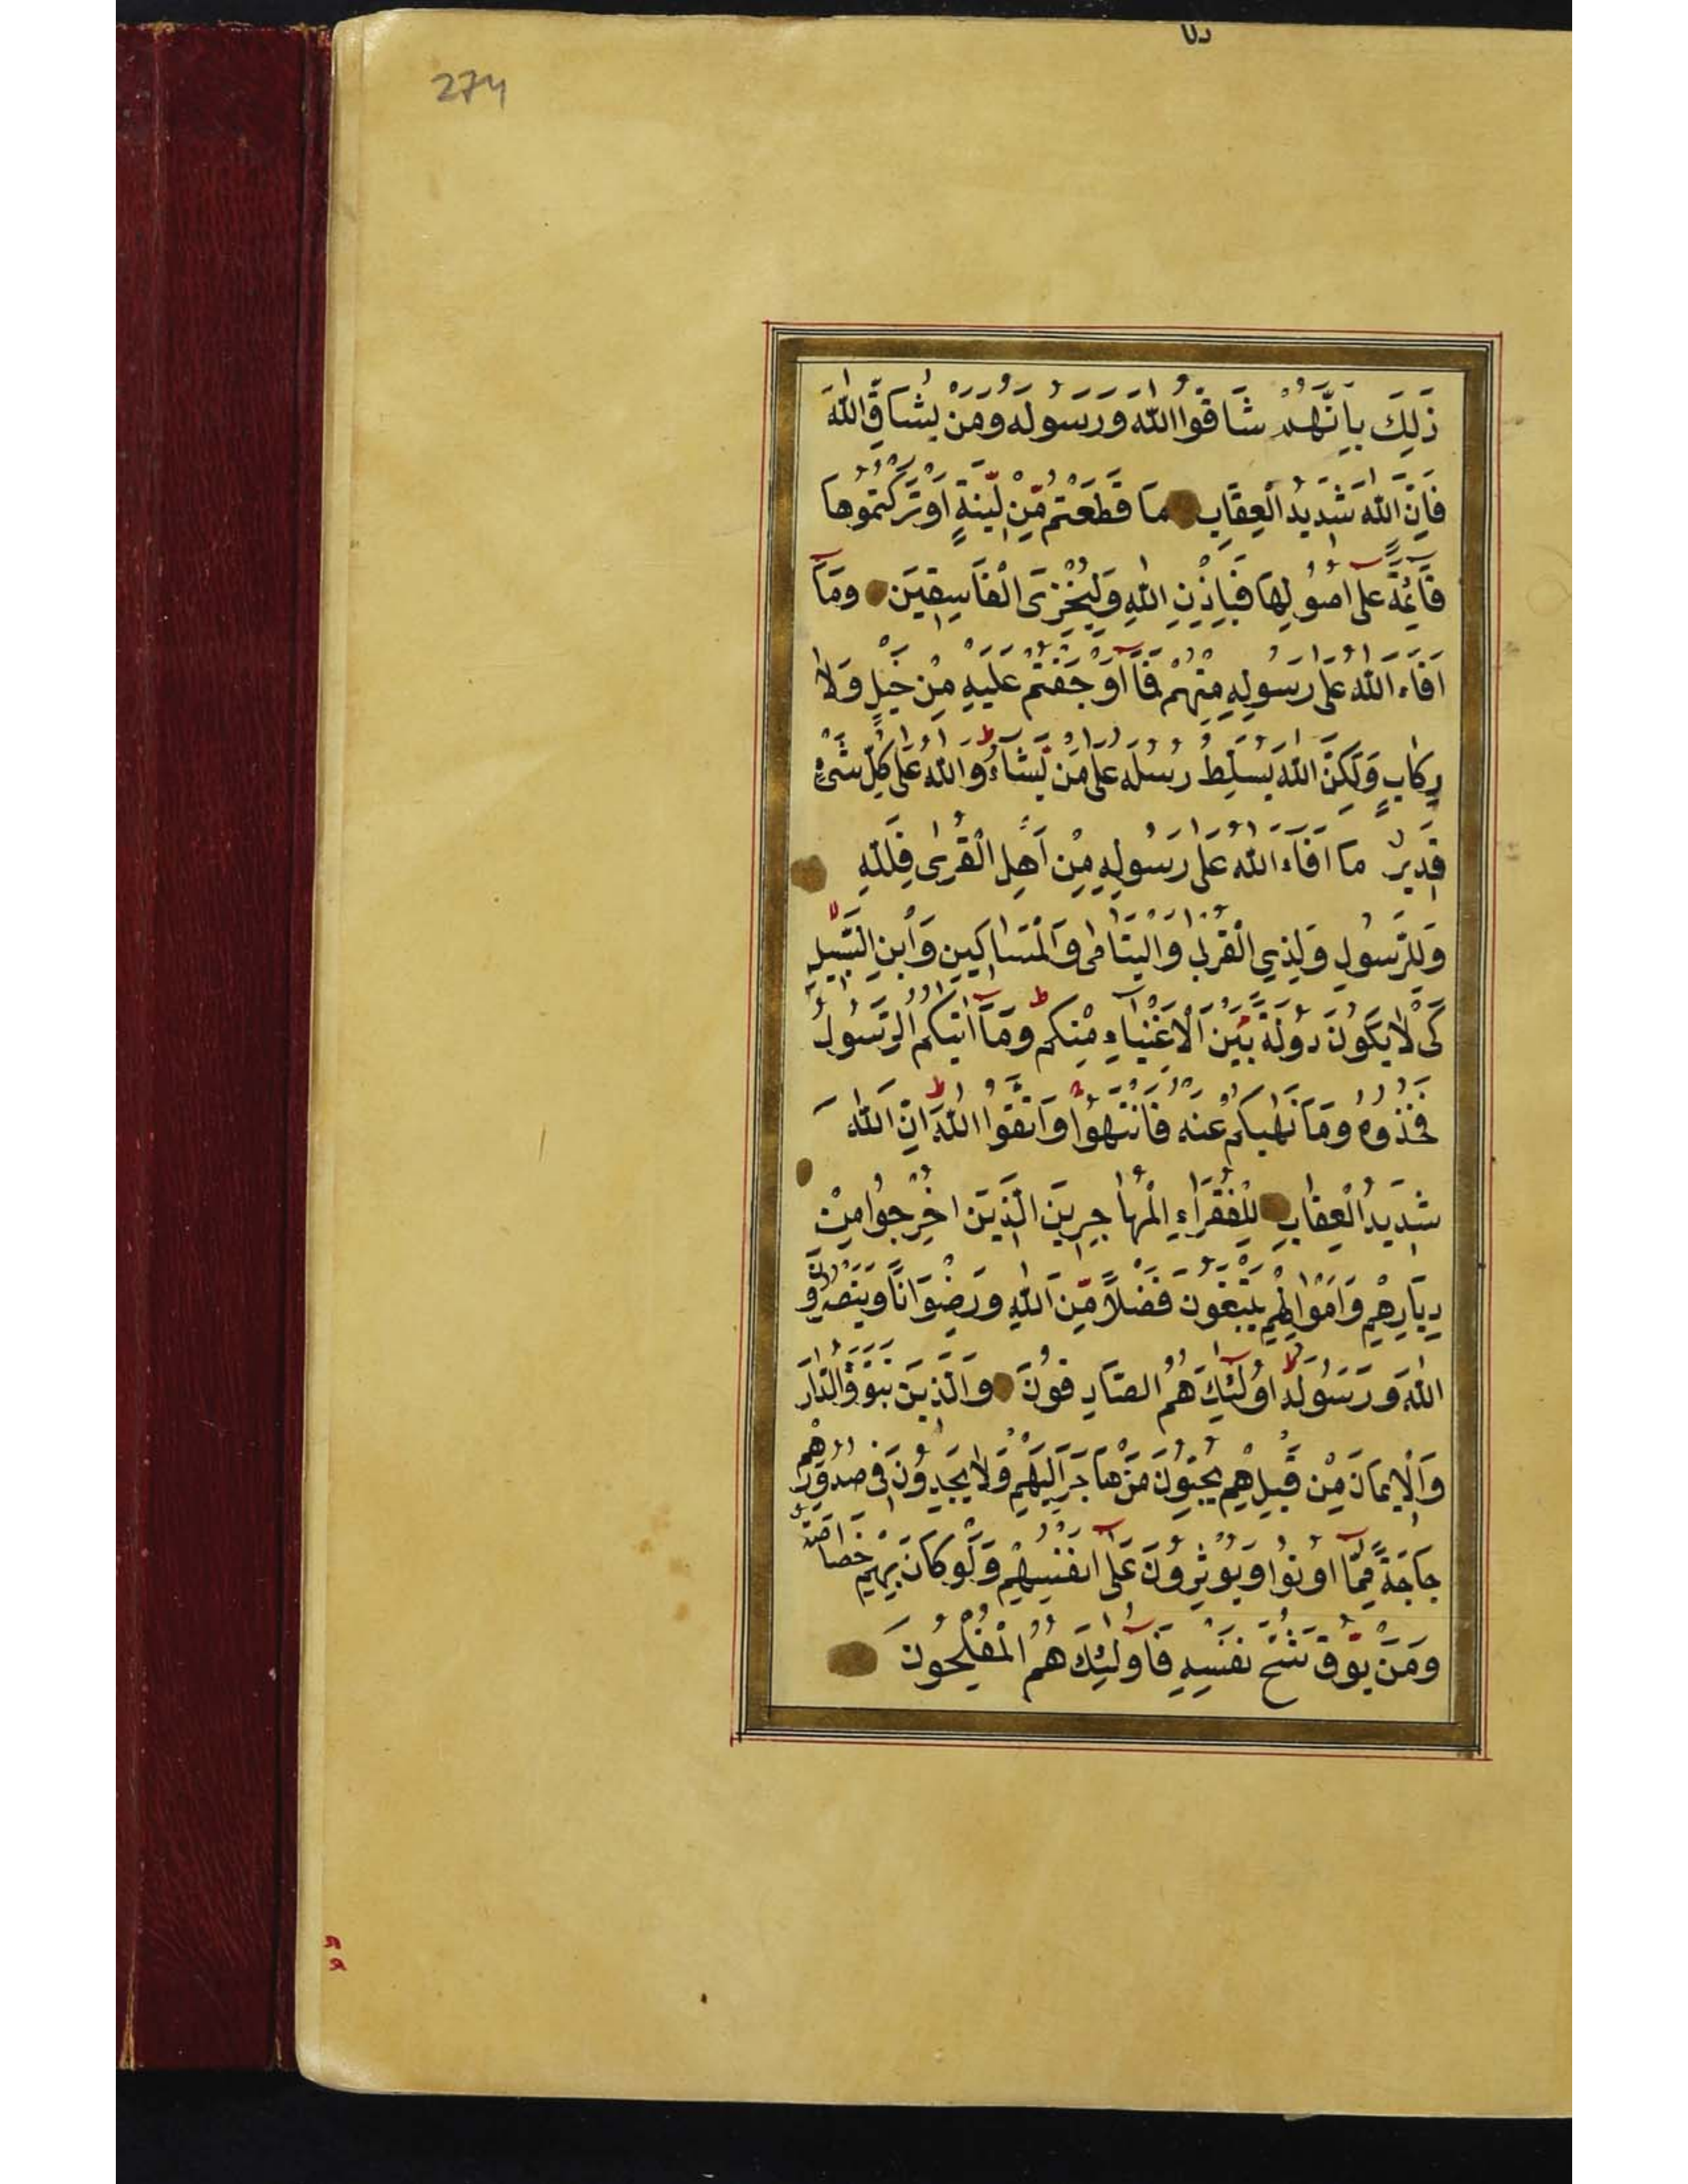 274
ذَلِكَ بِاَنَّهُمْ شَاقُّوا اللهَ وَرَسُولَهُ وَمَنْ يُشَاقِّ اللهَ
فَاِنَّ اللهَ شَدِيدُ الْعِقَابِ مَا قَطَعْتُمْ مِّنْ لِّينَةٍ اَوْ تَرَكْتُمُوهَا
قَآئِمَةً عَلَى اُصُولِهَا فَبِاِذْنِ اللهِ وَلِيُخْزِيَ الْفَاسِقِينَ وَمَآ
اَفَاءَ اللهُ عَلَى رَسُولِهِ مِنْهُمْ فَمَآ اَوْجَفْتُمْ عَلَيْهِ مِنْ خَيْلٍ وَلَا
رِكَابٍ وَلَكِنَّ اللهَ يُسَلِّطُ رُسُلَهُ عَلَى مَنْ يَّشَاءُ وَاللهُ عَلَى كُلِّ شَيْءٍ
قَدِيرٌ مَا اَفَاءَ اللهُ عَلَى رَسُولِهِ مِنْ اَهْلِ الْقُرَى فَلِلّهِ
وَلِلرَّسُولِ وَلِذِي الْقُرْبَى وَالْيَتَامَى وَالْمَسَاكِينِ وَابْنِ السَّبِيلِ
كَىْ لَا يَكُونَ دُولَةً بَيْنَ الْاَغْنِيَاءِ مِنْكُمْ وَمَآ اَتيكُمُ الرَّسُولُ
فَخُذُوهُ وَمَا نَهيكُمْ عَنْهُ فَانْتَهُوا وَاتَّقُوا اللهَ اِنَّ اللهَ
شَدِيدُ الْعِقَابِ لِلْفُقَرَاءِ الْمُهَاجِرِينَ الَّذِينَ اُخْرِجُوا مِنْ
دِيَارِهِمْ وَاَمْوَالِهِمْ يَبْتَغُونَ فَضْلًا مِّنَ اللهِ وَرِضْوَانًا وَيَنْصُرُونَ
اللهَ وَرَسُولَهُ اُولَئِكَ هُمُ الصَّادِقُونَ وَالَّذِينَ تَبَوَّؤُ الدَّارَ
وَالْاِيمَانَ مِنْ قَبْلِهِمْ يُحِبُّونَ مَنْ هَاجَرَ اِلَيْهِمْ وَلَا يَجِدُونَ فِي صُدُورِهِمْ
حَاجَةً مِّمَّآ اُوتُوا وَيُؤْثِرُونَ عَلَى اَنْفُسِهِمْ وَلَوْ كَانَ بِهِمْ خَصَاصَةٌ
وَمَنْ يُّوقَ شُحَّ نَفْسِهِ فَاُولَئِكَ هُمُ الْمُفْلِحُونَ